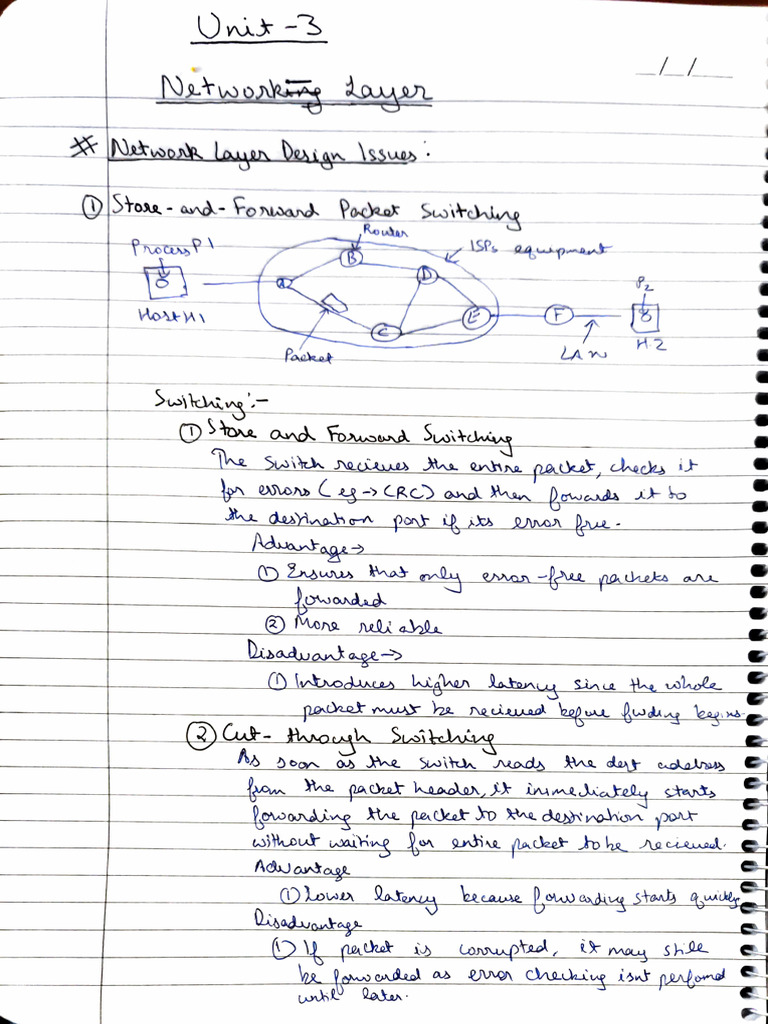 Unit -3
_/_/__
Networking Layer
# Network Layer Design Issues:
① Store-and-Forward Packet Switching
Router
Process P1
ISPs equipment
B
D
P2
A
Host H1
C
E
F
H2
Packet
LAN
Switching:-
① Store and Forward Switching
The switch recieves the entire packet, checks it
for errors (eg→ CRC) and then fowards it to
the destination port if its error free.
Advantage→
① Ensures that only error-free packets are
fowarded
② More reliable
Disadvantage→
① Introduces higher latency since the whole
packet must be recieved before fwding begins.
② Cut-through Switching
As soon as the switch reads the dest address
from the packet header, it immediately starts
fowarding the packet to the destination port
without waiting for entire packet to be recieved.
Advantage
① Lower latency because forwarding starts quickly
Disadvantage
① If packet is corrupted, it may still
be forwarded as error checking isnt perfomd
until later.